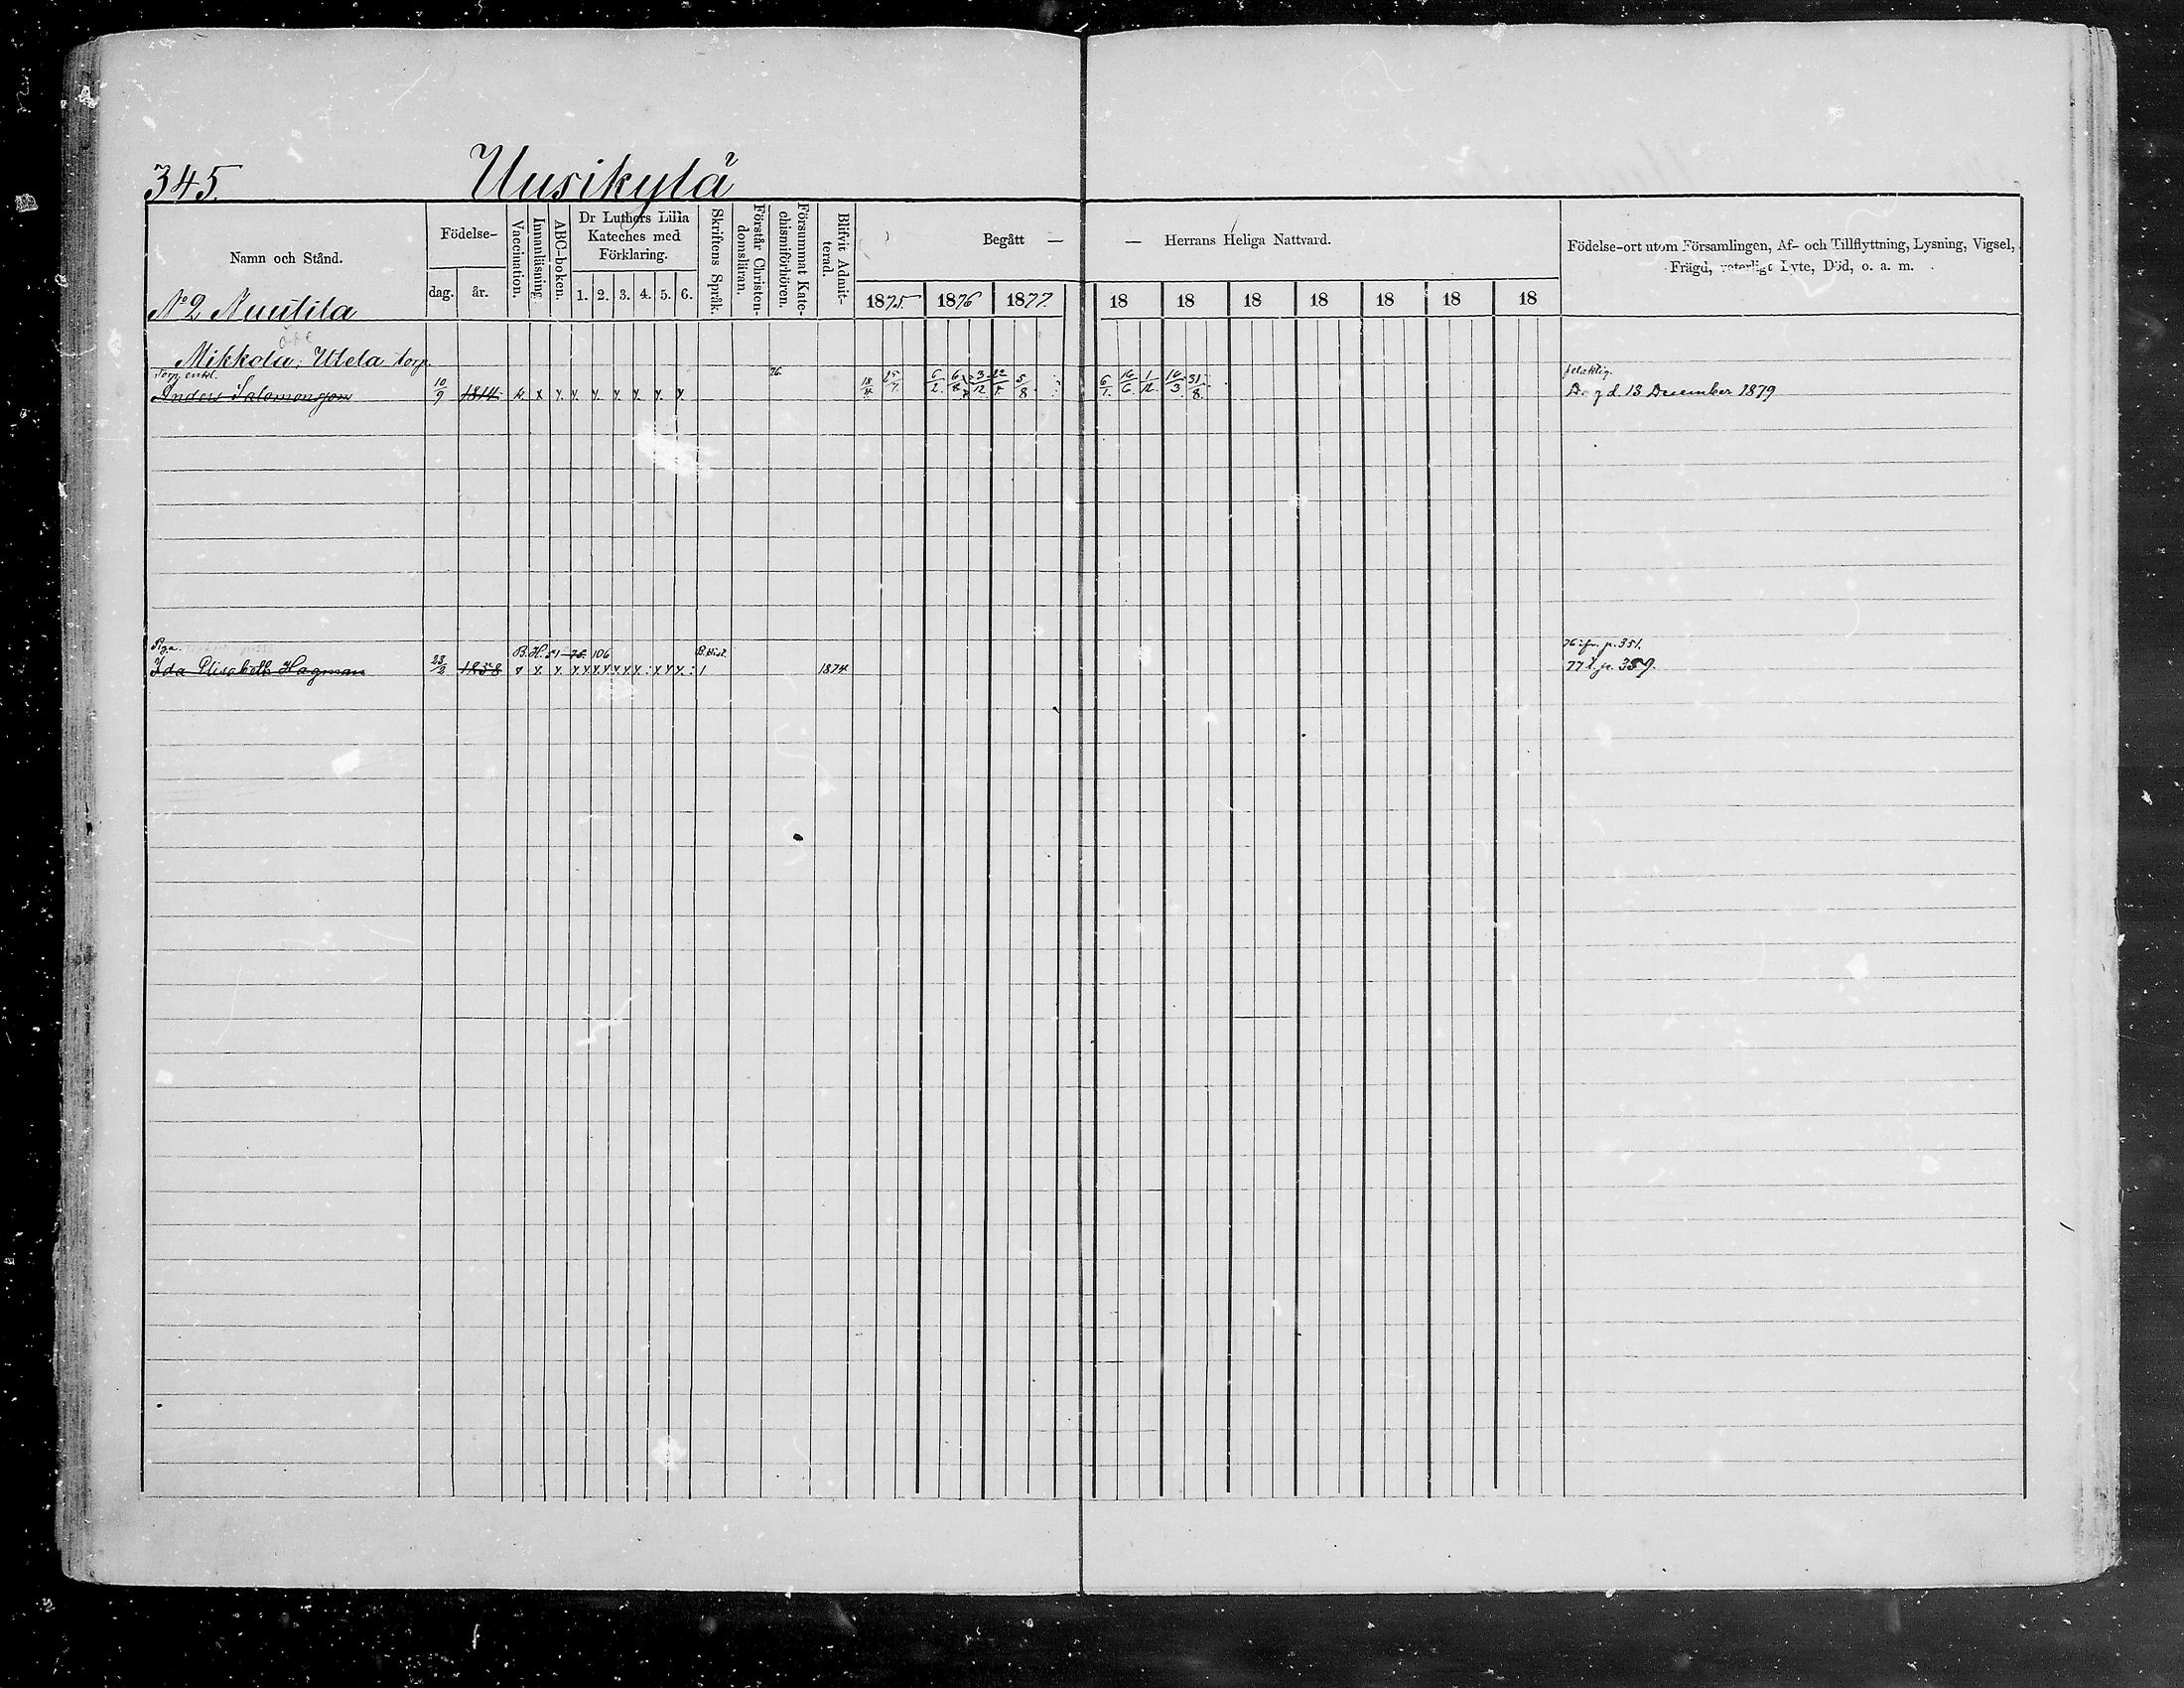 345. Uusikylä
Namn och Stånd.
Födelse-
dag. år.
Vaccination.
Innanläsning.
ABC-boken.
Dr Luthers Lilla
Kateches med
Förklaring.
1. 2. 3. 4. 5. 6.
Skriftens Språk.
Förstår Christen-
domsläran.
Försummat Kate-
chismiförhören.
Blifvit Admit-
terad.
Begått — — Herrans Heliga Nattvard.
1875. 1876 1877. 18 18 18 18 18 18 18
Födelse-ort utom Församlingen, Af- och Tillflyttning, Lysning, Vigsel,
Frägd, veterligt Lyte, Död, o. a. m.
No 2 Nuutila
Mikkola, Utela torp
Torp. enkl. 76.
Anders Salomonsson 10/9 1814 x x x x x x x x 18/4 6/2 6/8 5/8 6/1 16/6 1/12 16/3 31/8 d. 13 December 1879
Piga. B.H. 106 B.Hist. 76 p. 351.
Ida Elisabeth Hagman 23/2 1858 1874 77 p. 359.